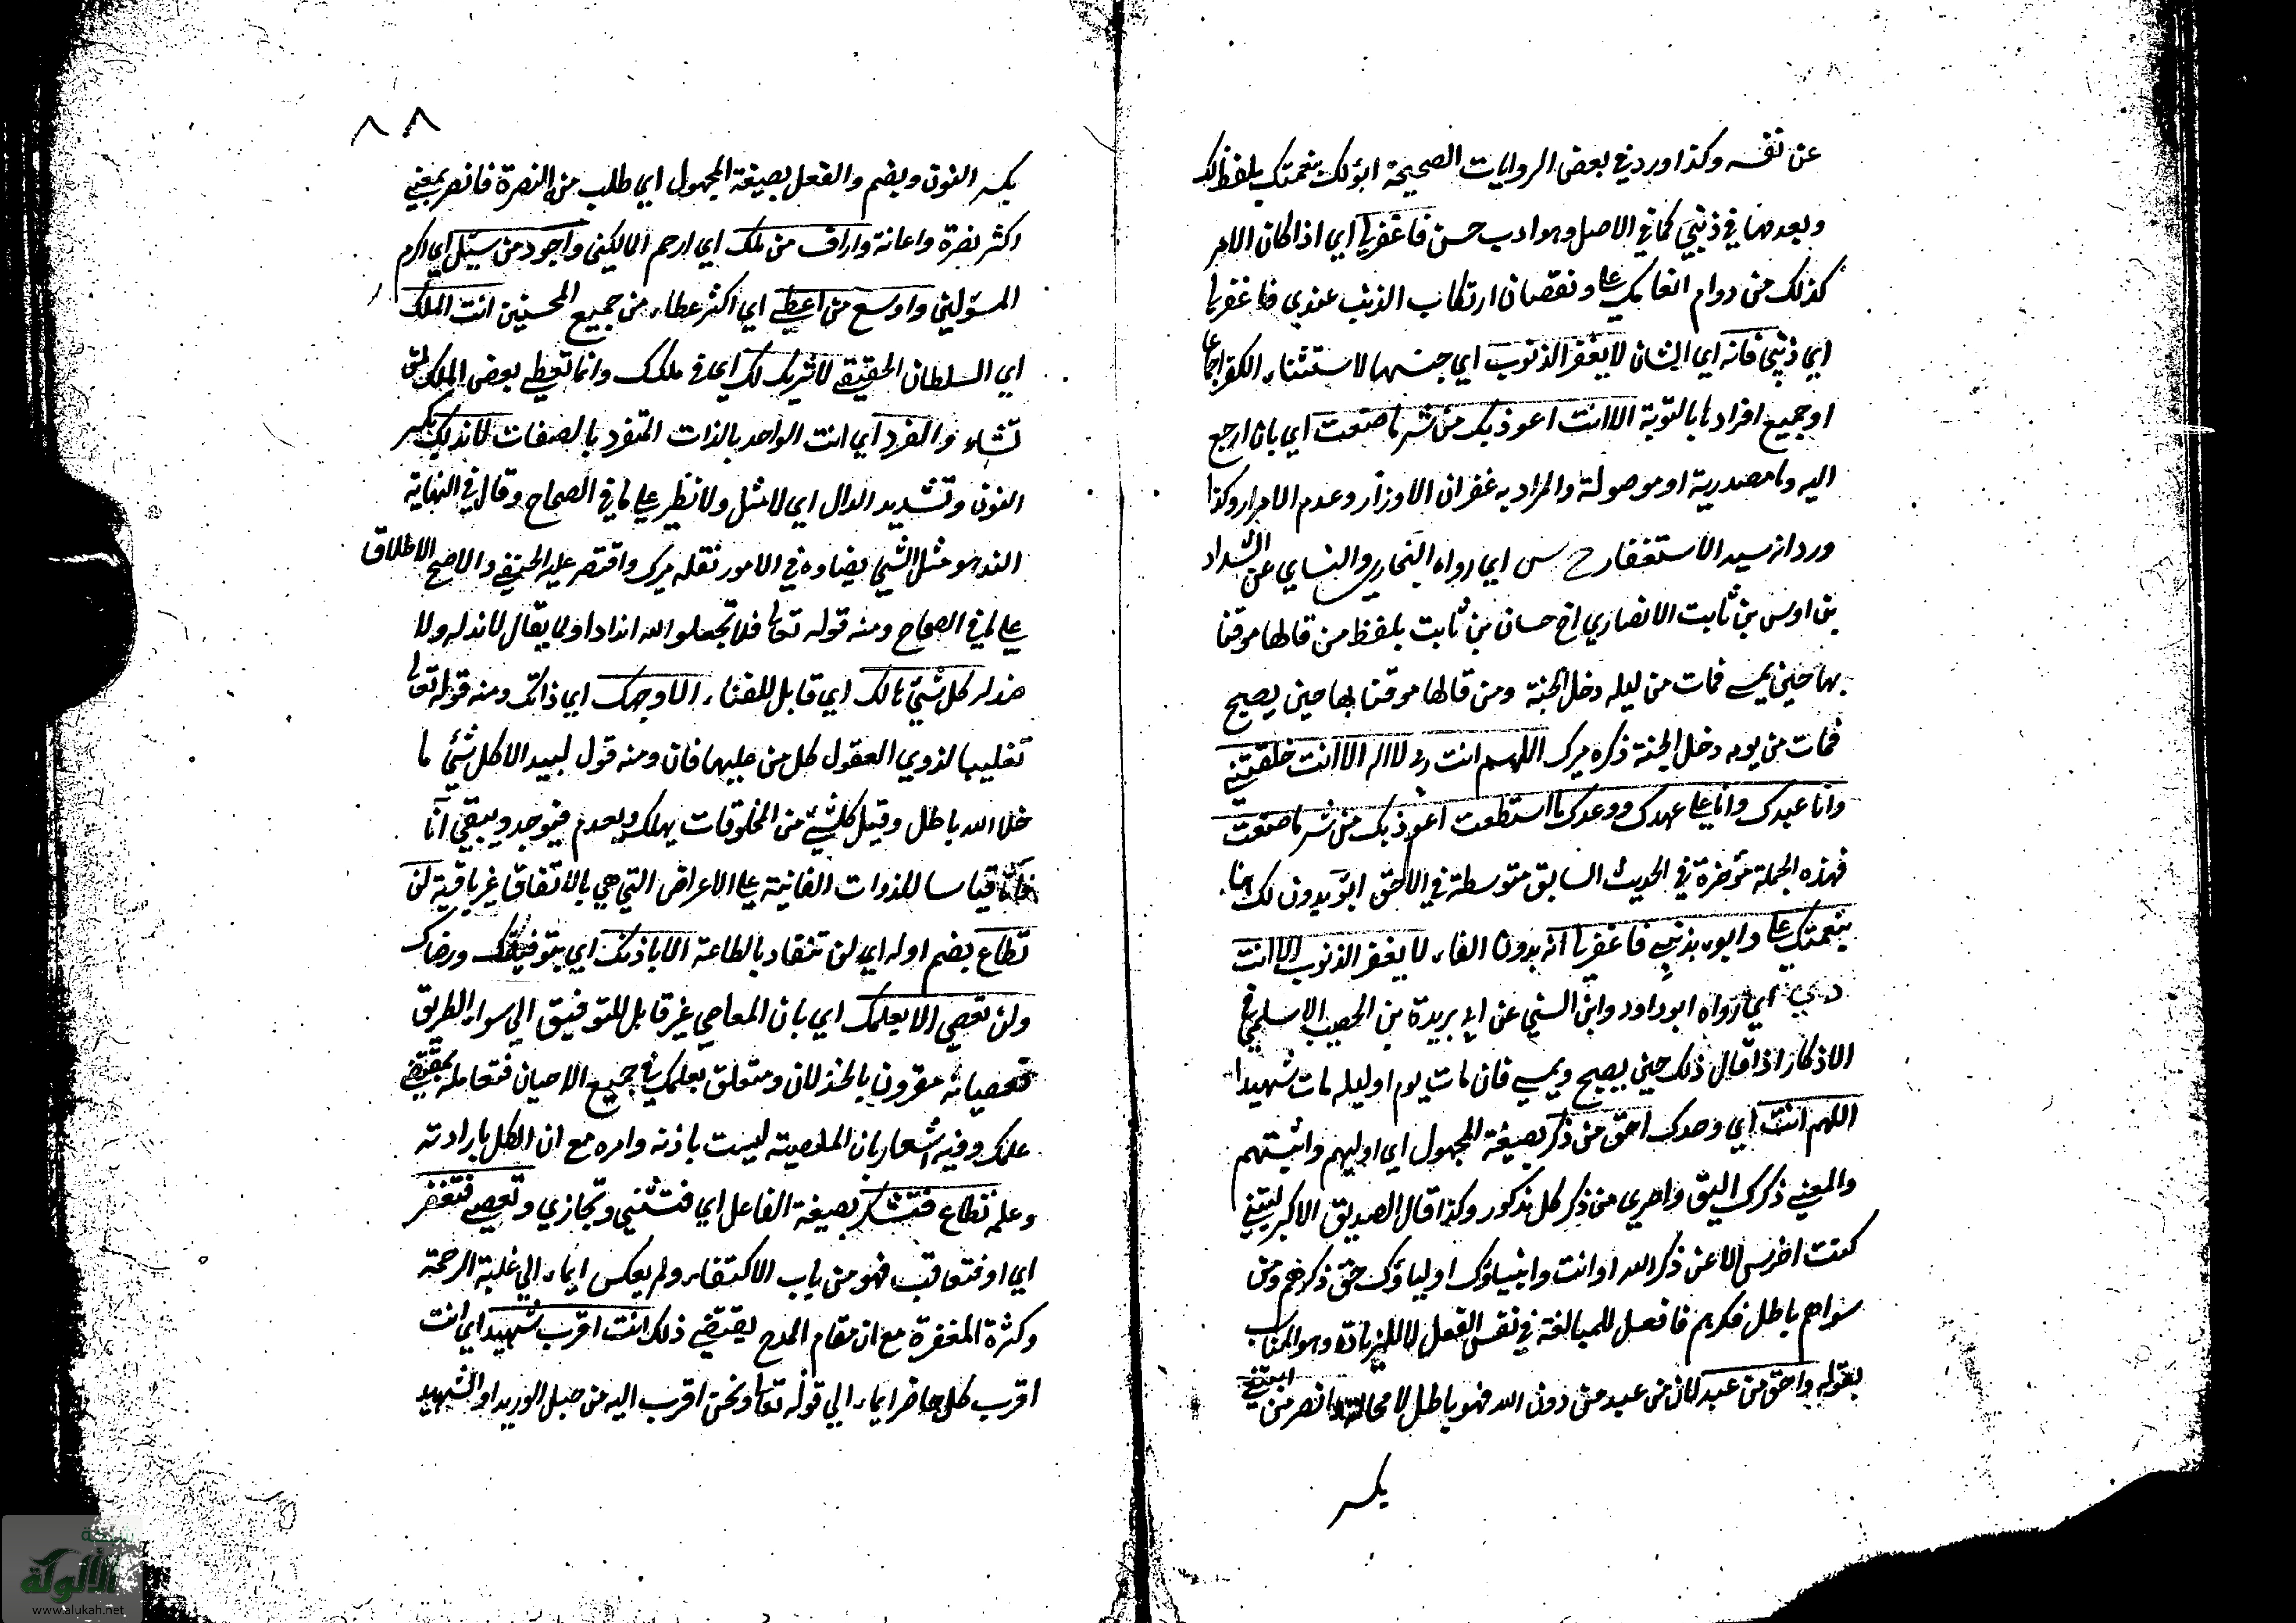 عن نفسه وكذا ورد في بعض الروايات الصحيحة ابؤلك بنعمتك بلفظ لك
وبعدمها في ذنبي كما في الاصل وهو ادب حسن فاغفرلي اي اذا كان الامر
كذلك من دوام انعامك علي ونقصان ارتكاب الذنب عندي فاغفرلي
اي ذنبي فانه اي الشان لا يغفر الذنوب اي جنسها لاستثناء الكفر اجماعا
او جميع افرادها بالتوبة الا انت اعوذ بك من شر ما صنعت اي بان ارجع
اليه وما مصدرية او موصولة والمراد به غفران الاوزار وعدم الاصرار وكذا
ورد انه سيد الاستغفار خ س اي رواه البخاري والنساي عن الشداد
بن اوس بن ثابت الانصاري اخ حسان بن ثابت بلفظ من قالها موقنا
بها حين يمسي فمات من ليله دخل الجنة ومن قالها موقنا بها حين يصبح
فمات من يومه دخل الجنة ذكره ميرك اللهم انت ربي لا اله الا انت خلقتني
وانا عبدك وانا علي عهدك ووعدك ما استطعت اعوذ بك من شر ما صنعت
فهذه الجملة مؤخرة في الحديث السابق متوسطة في الاحق ابؤ بدون لك هنا
بنعمتك علي وابوء بذنبي فاغفرلي انه بدون الفاء لا يغفر الذنوب الا انت
د ي اي رواه ابو داود وابن السني عن ابي بريدة بن الحصيب الاسلمي في
الاذكار اذا قال ذلك حين يصبح ويمسي فان مات يوم او ليله مات شهيدا
اللهم انت اي وحدك احق من ذكر بصيغة المجهول اي اوليهم واثبتهم
والمعني ذكرك اليق واحري من ذكر كل مذكور وكذا قال الصديق الاكبر ليتني
كنت اخرس الا عن ذكر الله او انت وانبياؤك اولياؤك حق ذكرهم ومن
سواهم باطل فكرهم فافعل للمبالغة في نفس الفعل لا للزيادة وهو المناسب
بقوله واحق من عبد لان من عبد من دون الله فهو باطل لا محالة وانصر من ابتغي
بكسر
٨٨
بكسر النون وبضم والفعل بصيغة المجهول اي طلب من النصرة فانصر بمعني
اكثر نصرة واعانة واراف من ملك اي ارحم المالكين واجود من سئل اي اكرم
المسؤلين واوسع من اعطي اي اكثر عطاء من جميع المحسنين انت الملك
اي السلطان الحقيقي لا شريك لك اي في ملكك وانما تعطي بعض الملك لمن
تشاء والفرد اي انت الواحد بالذات المتفرد بالصفات لا ند لك بكسر
النون وتشديد الدال اي لا مثل ولا نظير علي ما في الصحاح وقال في النهاية
الند هو مثل الشي يضاده في الامور نقله ميرك واقتصر عليه الحنفي والاصح الاطلاق
علي ما في الصحاح ومنه قوله تعالي فلا تجعلوا لله اندادا ولا يقال لا ند له ولا
ضد له كل شيئ هالك اي قابل للفناء الا وجهك اي ذاتك ومنه قوله تعالي
تغليبا لذوي العقول كل من عليها فان ومنه قول لبيد الا كل شيئ ما
خلا الله باطل وقيل كل شيئ من المخلوقات يهلك ويعدم فيوجد ويبقي آنا
فآنا قياسا للذوات الفانية علي الاعراض التي هي بالاتفاق غير باقية لن
تطاع بضم اوله اي لن تنقاد بالطاعة الا باذنك اي بتوفيقك ورضاك
ولن تعصي الا بعلمك اي بان المعاصي غير قابل للتوفيق الي سواء الطريق
فعصيانه مقرون بالخذلان ومتعلق بعلمك في جميع الاحيان فتعامله بمقتضي
علمك وفيه اشعار بان المعصية ليست باذنه وامره مع ان الكل بارادته
وعلمه تطاع فتشكر بصيغة الفاعل اي فتثني وتجازي وتعصي فتغفر
اي او فتعاقب فهو من باب الاكتفاء ولم يعكس ايماء الي غلبة الرحمة
وكثرة المغفرة مع ان مقام المدح يقتضي ذلك انت اقرب شهيد اي انت
اقرب كل حاضر ايماء الي قوله تعالي ونحن اقرب اليه من حبل الوريد او الشهيد
الألوكة
www.alukah.net